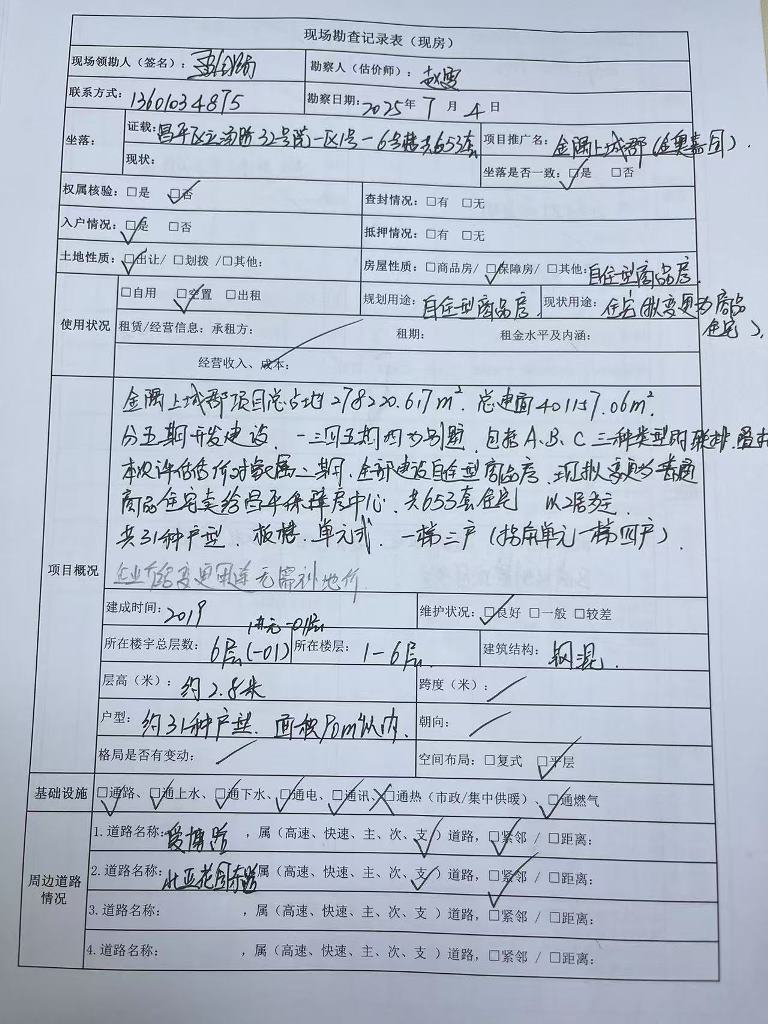 现场勘查记录表（现房）
现场领勘人（签名）： 勘察人（估价师）：赵雯
联系方式：13601034875 勘察日期：2025年7月4日
坐落： 证载：昌平区立汤路32号院一区1号-6号楼共653套 项目推广名：金隅上城郡（金奥嘉园）.
现状： 坐落是否一致：☑是 □否
权属核验：□是 ☑否 查封情况：□有 □无
入户情况：☑是 □否 抵押情况：□有 □无
土地性质：☑出让/ □划拨 /□其他： 房屋性质：□商品房/ ☑保障房/ □其他：自住型商品房.
使用状况 □自用 ☑空置 □出租 规划用途：自住型商品房. 现状用途：住宅(拟变更为商品
住宅).
租赁/经营信息：承租方： 租期： 租金水平及内涵：
经营收入、成本：
项目概况
金隅上城郡项目总占地278220.617m². 总建面401157.06m².
分五期开发建设. 一三四五期四为别墅. 包括A、B、C三种类型的联排、叠拼
本次评估估价对象属二期、全部建设自住型商品房、现拟变更为普通
商品住宅卖给昌平保障房中心. 共653套住宅 以2居为主.
共31种户型. 板楼. 单元式. 一梯三户(拐角单元一梯四户).
企业介绍变更用途无需补地价.
建成时间：2019 维护状况：☑良好 □一般 □较差
1单元-01层
所在楼宇总层数：6层(-01) 所在楼层：1-6层. 建筑结构：钢混.
层高（米）：约2.8米 跨度（米）：
户型：约31种户型. 面积90m²以内. 朝向：
格局是否有变动： 空间布局：□复式 ☑平层
基础设施 ☑通路、☑通上水、☑通下水、☑通电、☑通讯、☒通热（市政/集中供暖）、☑通燃气
周边道路情况
1.道路名称：爱博路 ，属（高速、快速、主、次、支）道路，☑紧邻 / □距离：
2.道路名称：北亚花园东路 属（高速、快速、主、次、支）道路，☑紧邻 / □距离：
3.道路名称： ，属（高速、快速、主、次、支 ）道路，□紧邻 / □距离：
4.道路名称： ，属（高速、快速、主、次、支 ）道路，□紧邻 / □距离：